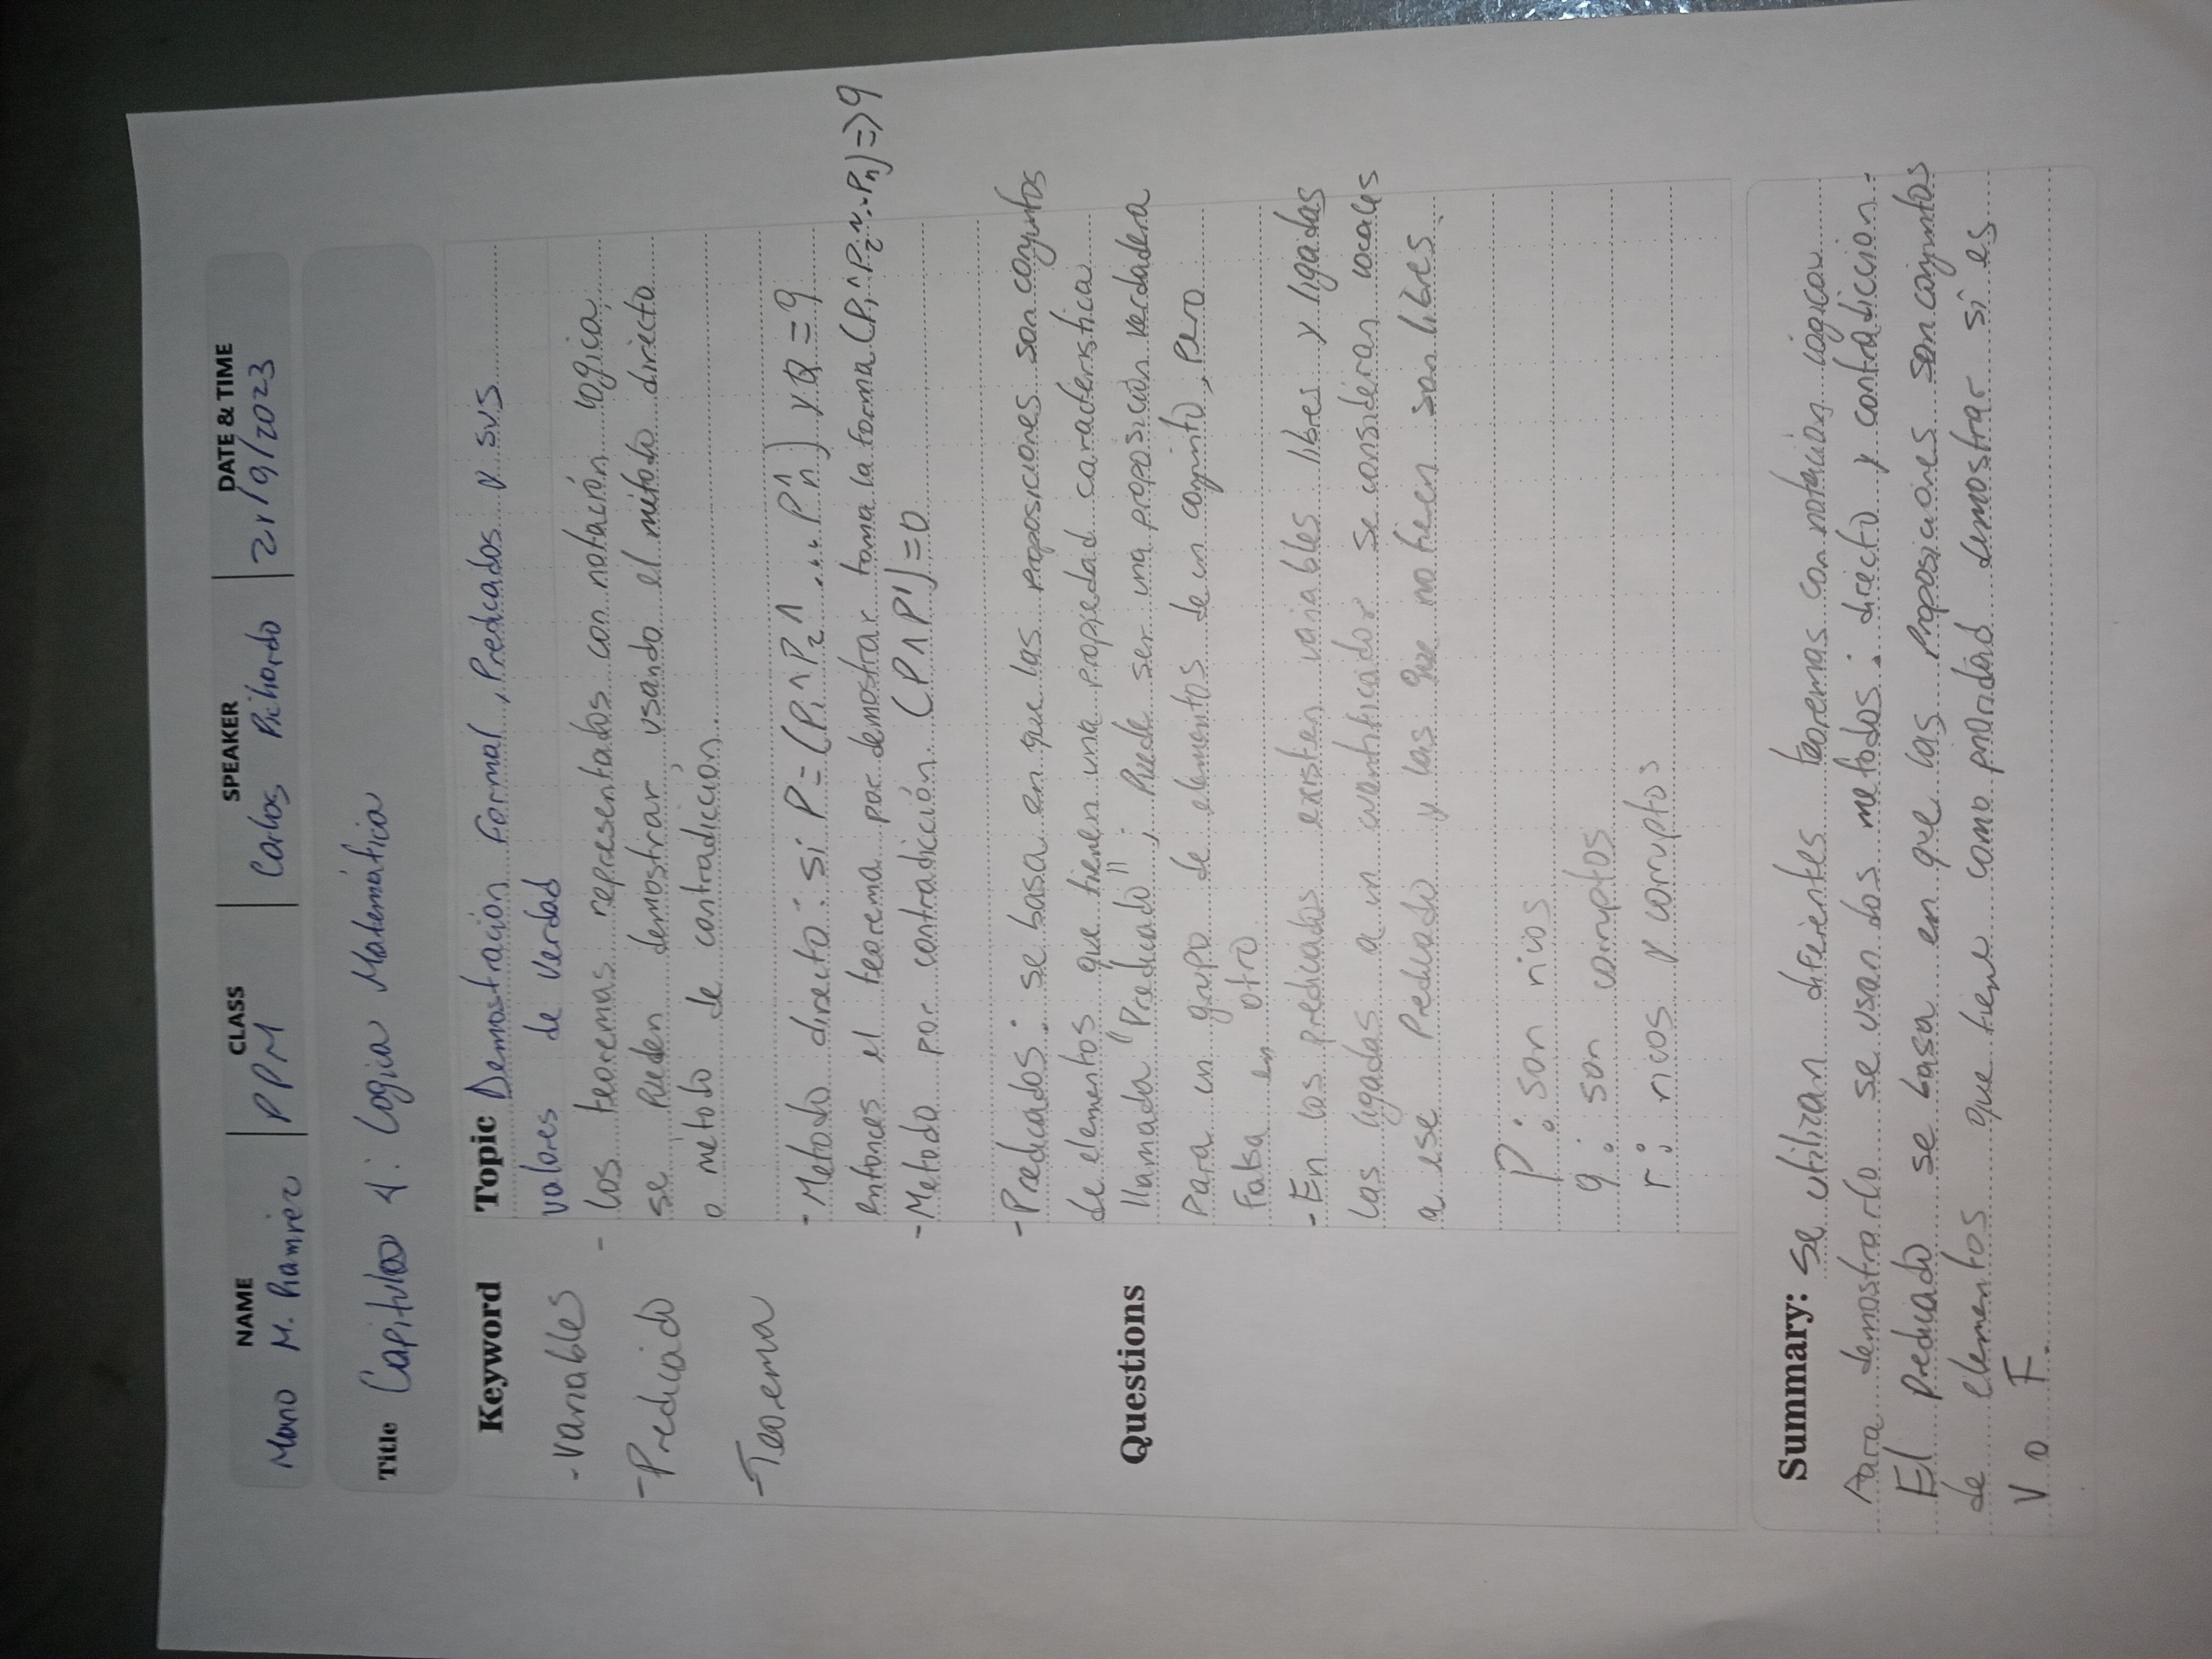 NAME CLASS SPEAKER DATE & TIME
Mario M. Ramirez PPM Carlos Pichardo 21/9/2023
Title Capitulo 4: Logica Matemática
Keyword
-Variables
-Predicado
-Teorema
Questions
Topic Demostracion Formal, Predicados y sus
valores de verdad
- Los teoremas representados con notación logica,
se pueden demostrar usando el método directo
o método de contradicción.
-Metodo directo: si P=(P₁^P₂^ ... P^n) y Q=q
entonces el teorema por demostrar toma la forma (P₁^P₂^..Pn)=>q
-Metodo por contradicción. (P∧P')=0
-Predicados: se basa en que las proposiciones son conjuntos
de elementos que tienen una propiedad caracteristica
llamada "Predicado"; Puede ser una proposición verdadera
para un grupo de elementos de un conjunto, Pero
Falsa en otro
-En los predicados existen variables libres y ligadas
Las ligadas a un cuantificador se consideran locales
a ese Predicado y las que no tienen son libres.
P: son ricos
q: son corruptos
r: ricos y corruptos
Summary: Se utilizan diferentes teoremas con notacion lógica
Para demostrarlo se usan dos metodos: directo y contradiccion.
El predicado se basa en que las Proposiciones son conjuntos
de elementos que tiene como prioridad demostrar si es
V o F.